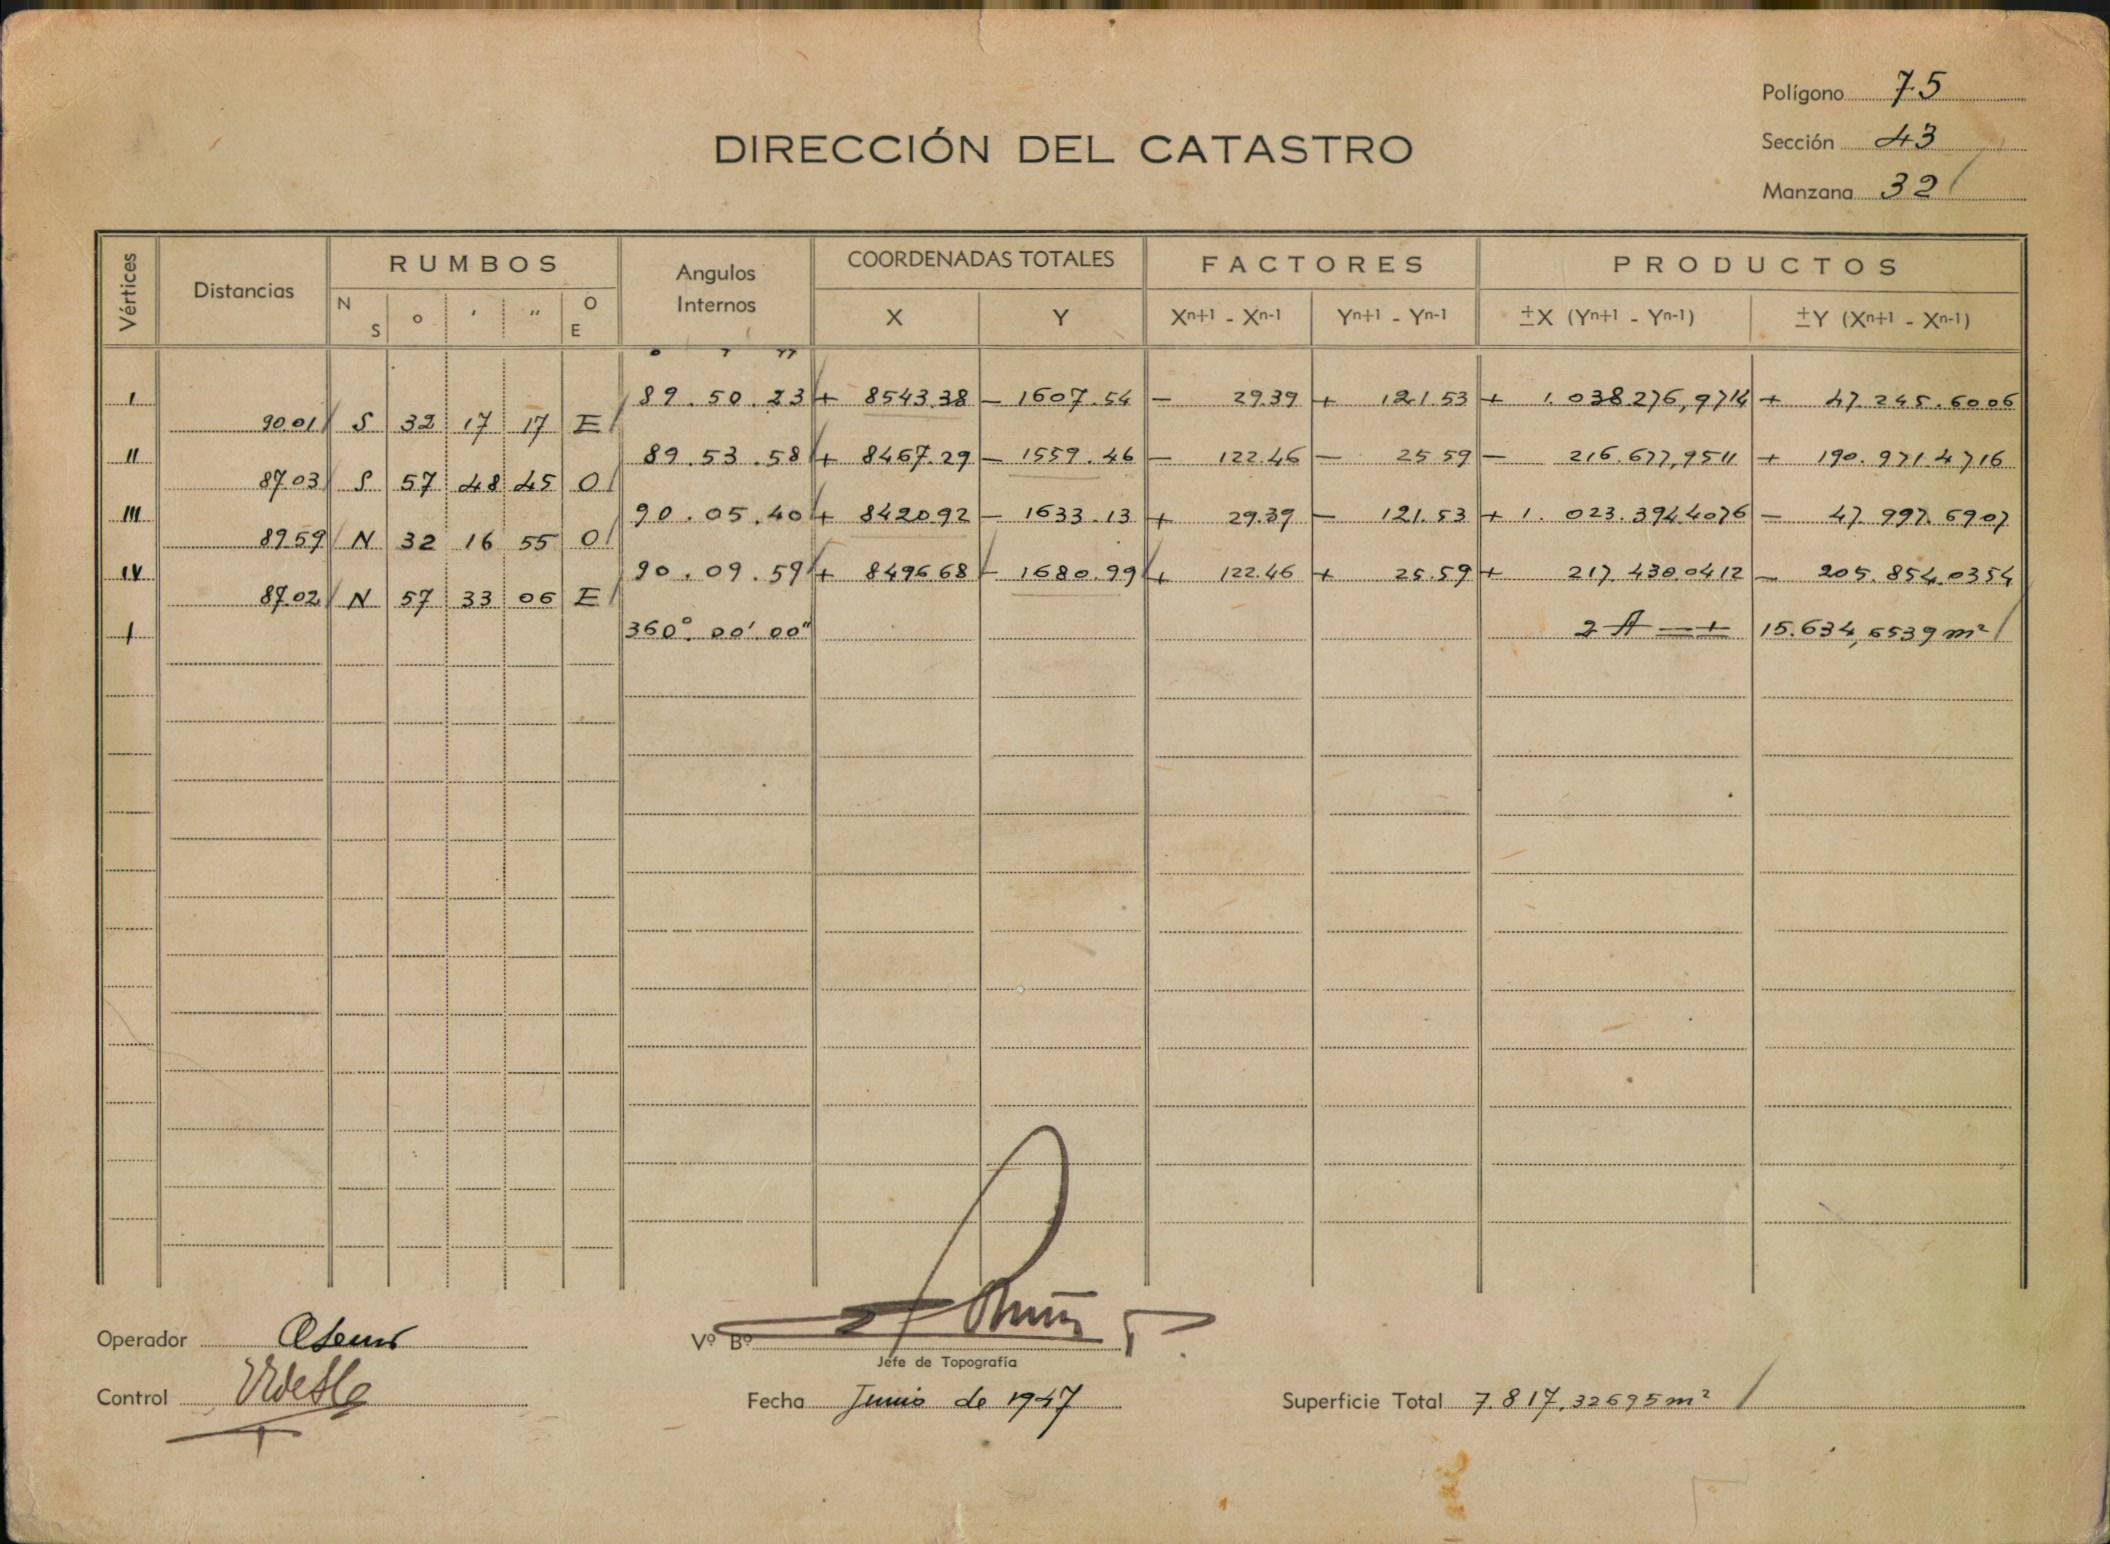 Polígono 75
DIRECCIÓN DEL CATASTRO
Sección 43
Manzana 32
Vértices Distancias RUMBOS Angulos Internos COORDENADAS TOTALES FACTORES PRODUCTOS
N S ° ' " O E X Y Xn+1 - Xn-1 Yn+1 - Yn-1 ±X (Yn+1 - Yn-1) ±Y (Xn+1 - Xn-1)
° ' "
I 89.50.23 + 8543.38 - 1607.54 - 29.39 + 121.53 + 1.038.276,9714 + 47.245.6006
90.01 S 32 17 17 E
II 89.53.58 + 8467.29 - 1559.46 - 122.46 - 25.59 - 216.677,9511 + 190.971.4716
87.03 S 57 48 45 O
III 90.05.40 + 8420.92 - 1633.13 + 29.39 - 121.53 + 1.023.394.4076 - 47.997.6907
89.59 N 32 16 55 O
IV 90.09.59 + 8496.68 - 1680.99 + 122.46 + 25.59 + 217.430.0412 - 205.854.0354
87.02 N 57 33 06 E
I 360°.00'.00" 2 A = + 15.634,6539 m²
Operador
Vº Bº
Jefe de Topografía
Control
Fecha Junio de 1947
Superficie Total 7.817,32695 m²